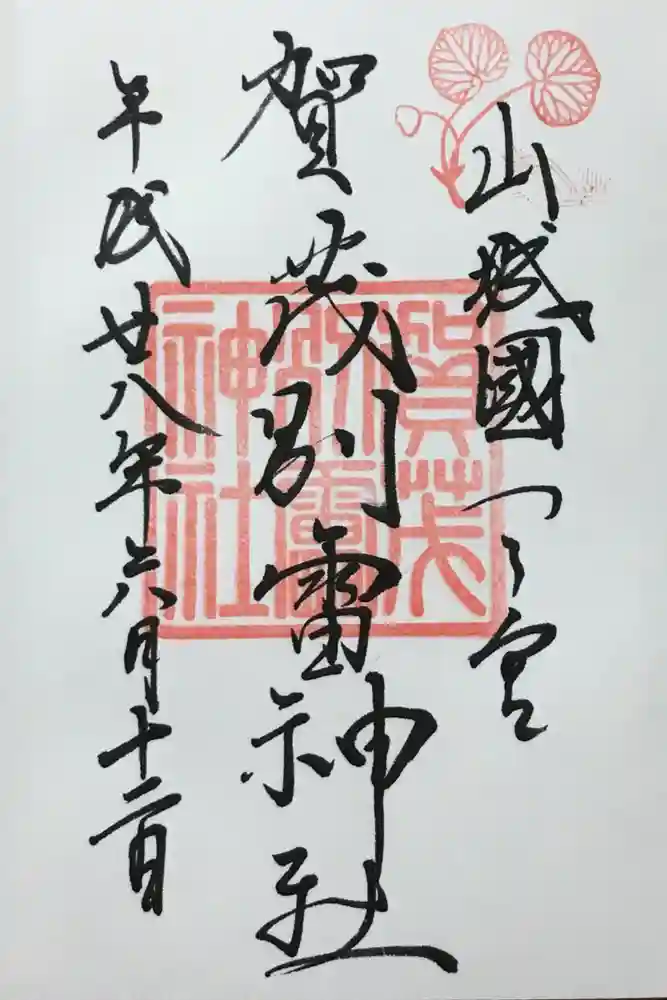 山城國一之宮
賀茂別雷神社
平成廿八年六月十二日
賀茂
別雷
神社